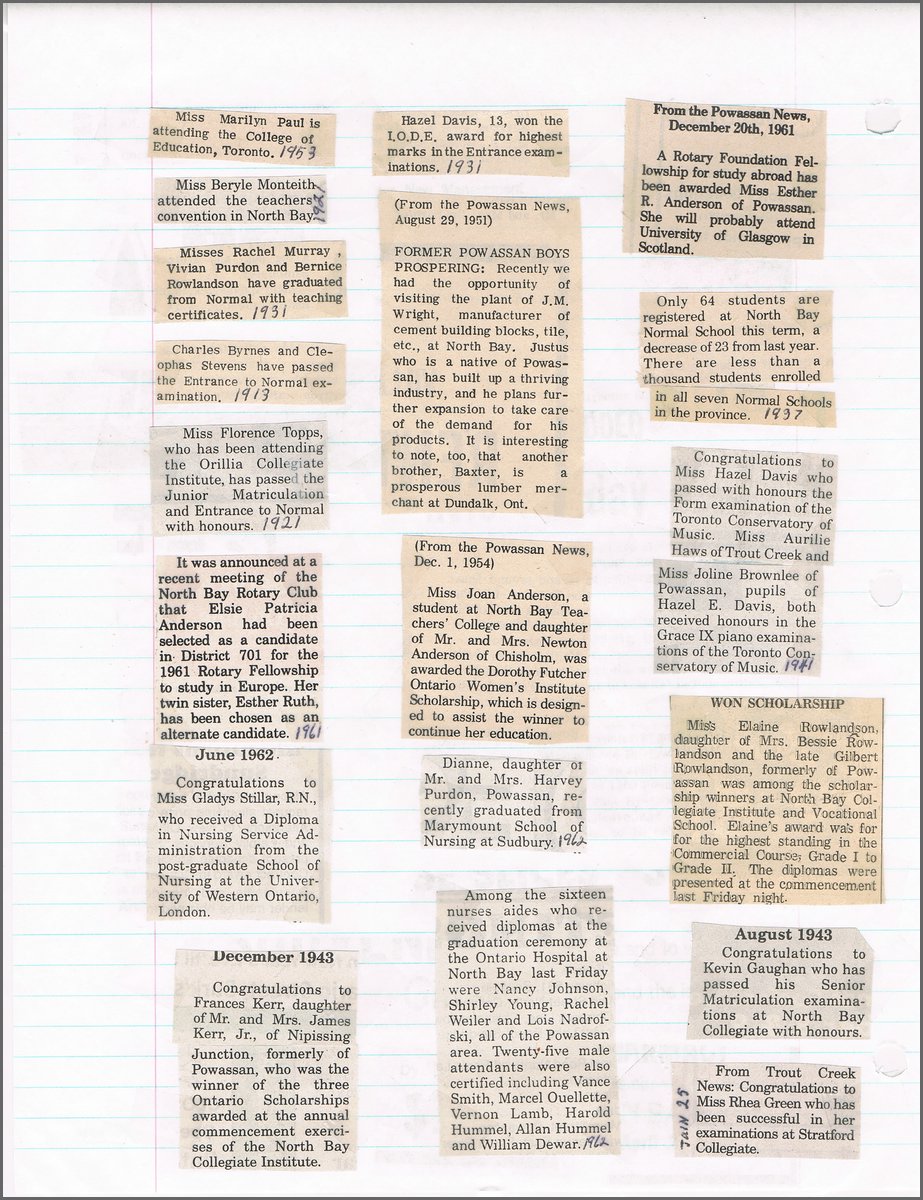 Miss Marilyn Paul is
attending the College of
Education, Toronto. 1953
Miss Beryle Monteith
attended the teachers'
convention in North Bay. 1921
Misses Rachel Murray ,
Vivian Purdon and Bernice
Rowlandson have graduated
from Normal with teaching
certificates. 1931
Charles Byrnes and Cle-
ophas Stevens have passed
the Entrance to Normal ex-
amination. 1913
Miss Florence Topps,
who has been attending
the Orillia Collegiate
Institute, has passed the
Junior Matriculation
and Entrance to Normal
with honours. 1921
It was announced at a
recent meeting of the
North Bay Rotary Club
that Elsie Patricia
Anderson had been
selected as a candidate
in District 701 for the
1961 Rotary Fellowship
to study in Europe. Her
twin sister, Esther Ruth,
has been chosen as an
alternate candidate. 1961
June 1962
Congratulations to
Miss Gladys Stillar, R.N.,
who received a Diploma
in Nursing Service Ad-
ministration from the
post-graduate School of
Nursing at the Univer-
sity of Western Ontario,
London.
December 1943
Congratulations to
Frances Kerr, daughter
of Mr. and Mrs. James
Kerr, Jr., of Nipissing
Junction, formerly of
Powassan, who was the
winner of the three
Ontario Scholarships
awarded at the annual
commencement exerci-
ses of the North Bay
Collegiate Institute.
Hazel Davis, 13, won the
I.O.D.E. award for highest
marks in the Entrance exam-
inations. 1931
(From the Powassan News,
August 29, 1951)
FORMER POWASSAN BOYS
PROSPERING: Recently we
had the opportunity of
visiting the plant of J.M.
Wright, manufacturer of
cement building blocks, tile,
etc., at North Bay. Justus
who is a native of Powas-
san, has built up a thriving
industry, and he plans fur-
ther expansion to take care
of the demand for his
products. It is interesting
to note, too, that another
brother, Baxter, is a
prosperous lumber mer-
chant at Dundalk, Ont.
(From the Powassan News,
Dec. 1, 1954)
Miss Joan Anderson, a
student at North Bay Tea-
chers' College and daughter
of Mr. and Mrs. Newton
Anderson of Chisholm, was
awarded the Dorothy Futcher
Ontario Women's Institute
Scholarship, which is design-
ed to assist the winner to
continue her education.
Dianne, daughter of
Mr. and Mrs. Harvey
Purdon, Powassan, re-
cently graduated from
Marymount School of
Nursing at Sudbury. 1962
Among the sixteen
nurses aides who re-
ceived diplomas at the
graduation ceremony at
the Ontario Hospital at
North Bay last Friday
were Nancy Johnson,
Shirley Young, Rachel
Weiler and Lois Nadrof-
ski, all of the Powassan
area. Twenty-five male
attendants were also
certified including Vance
Smith, Marcel Ouellette,
Vernon Lamb, Harold
Hummel, Allan Hummel
and William Dewar. 1962
From the Powassan News,
December 20th, 1961
A Rotary Foundation Fel-
lowship for study abroad has
been awarded Miss Esther
R. Anderson of Powassan.
She will probably attend
University of Glasgow in
Scotland.
Only 64 students are
registered at North Bay
Normal School this term, a
decrease of 23 from last year.
There are less than a
thousand students enrolled
in all seven Normal Schools
in the province. 1937
Congratulations to
Miss Hazel Davis who
passed with honours the
Form examination of the
Toronto Conservatory of
Music. Miss Aurilie
Haws of Trout Creek and
Miss Joline Brownlee of
Powassan, pupils of
Hazel E. Davis, both
received honours in the
Grace IX piano examina-
tions of the Toronto Con-
servatory of Music. 1941
WON SCHOLARSHIP
Miss Elaine Rowlandson,
daughter of Mrs. Bessie Row-
landson and the late Gilbert
Rowlandson, formerly of Pow-
assan was among the scholar-
ship winners at North Bay Col-
legiate Institute and Vocational
School. Elaine's award was for
for the highest standing in the
Commercial Course; Grade I to
Grade II. The diplomas were
presented at the commencement
last Friday night.
August 1943
Congratulations to
Kevin Gaughan who has
passed his Senior
Matriculation examina-
tions at North Bay
Collegiate with honours.
From Trout Creek
News: Congratulations to
Miss Rhea Green who has
been successful in her
examinations at Stratford
Collegiate.
25